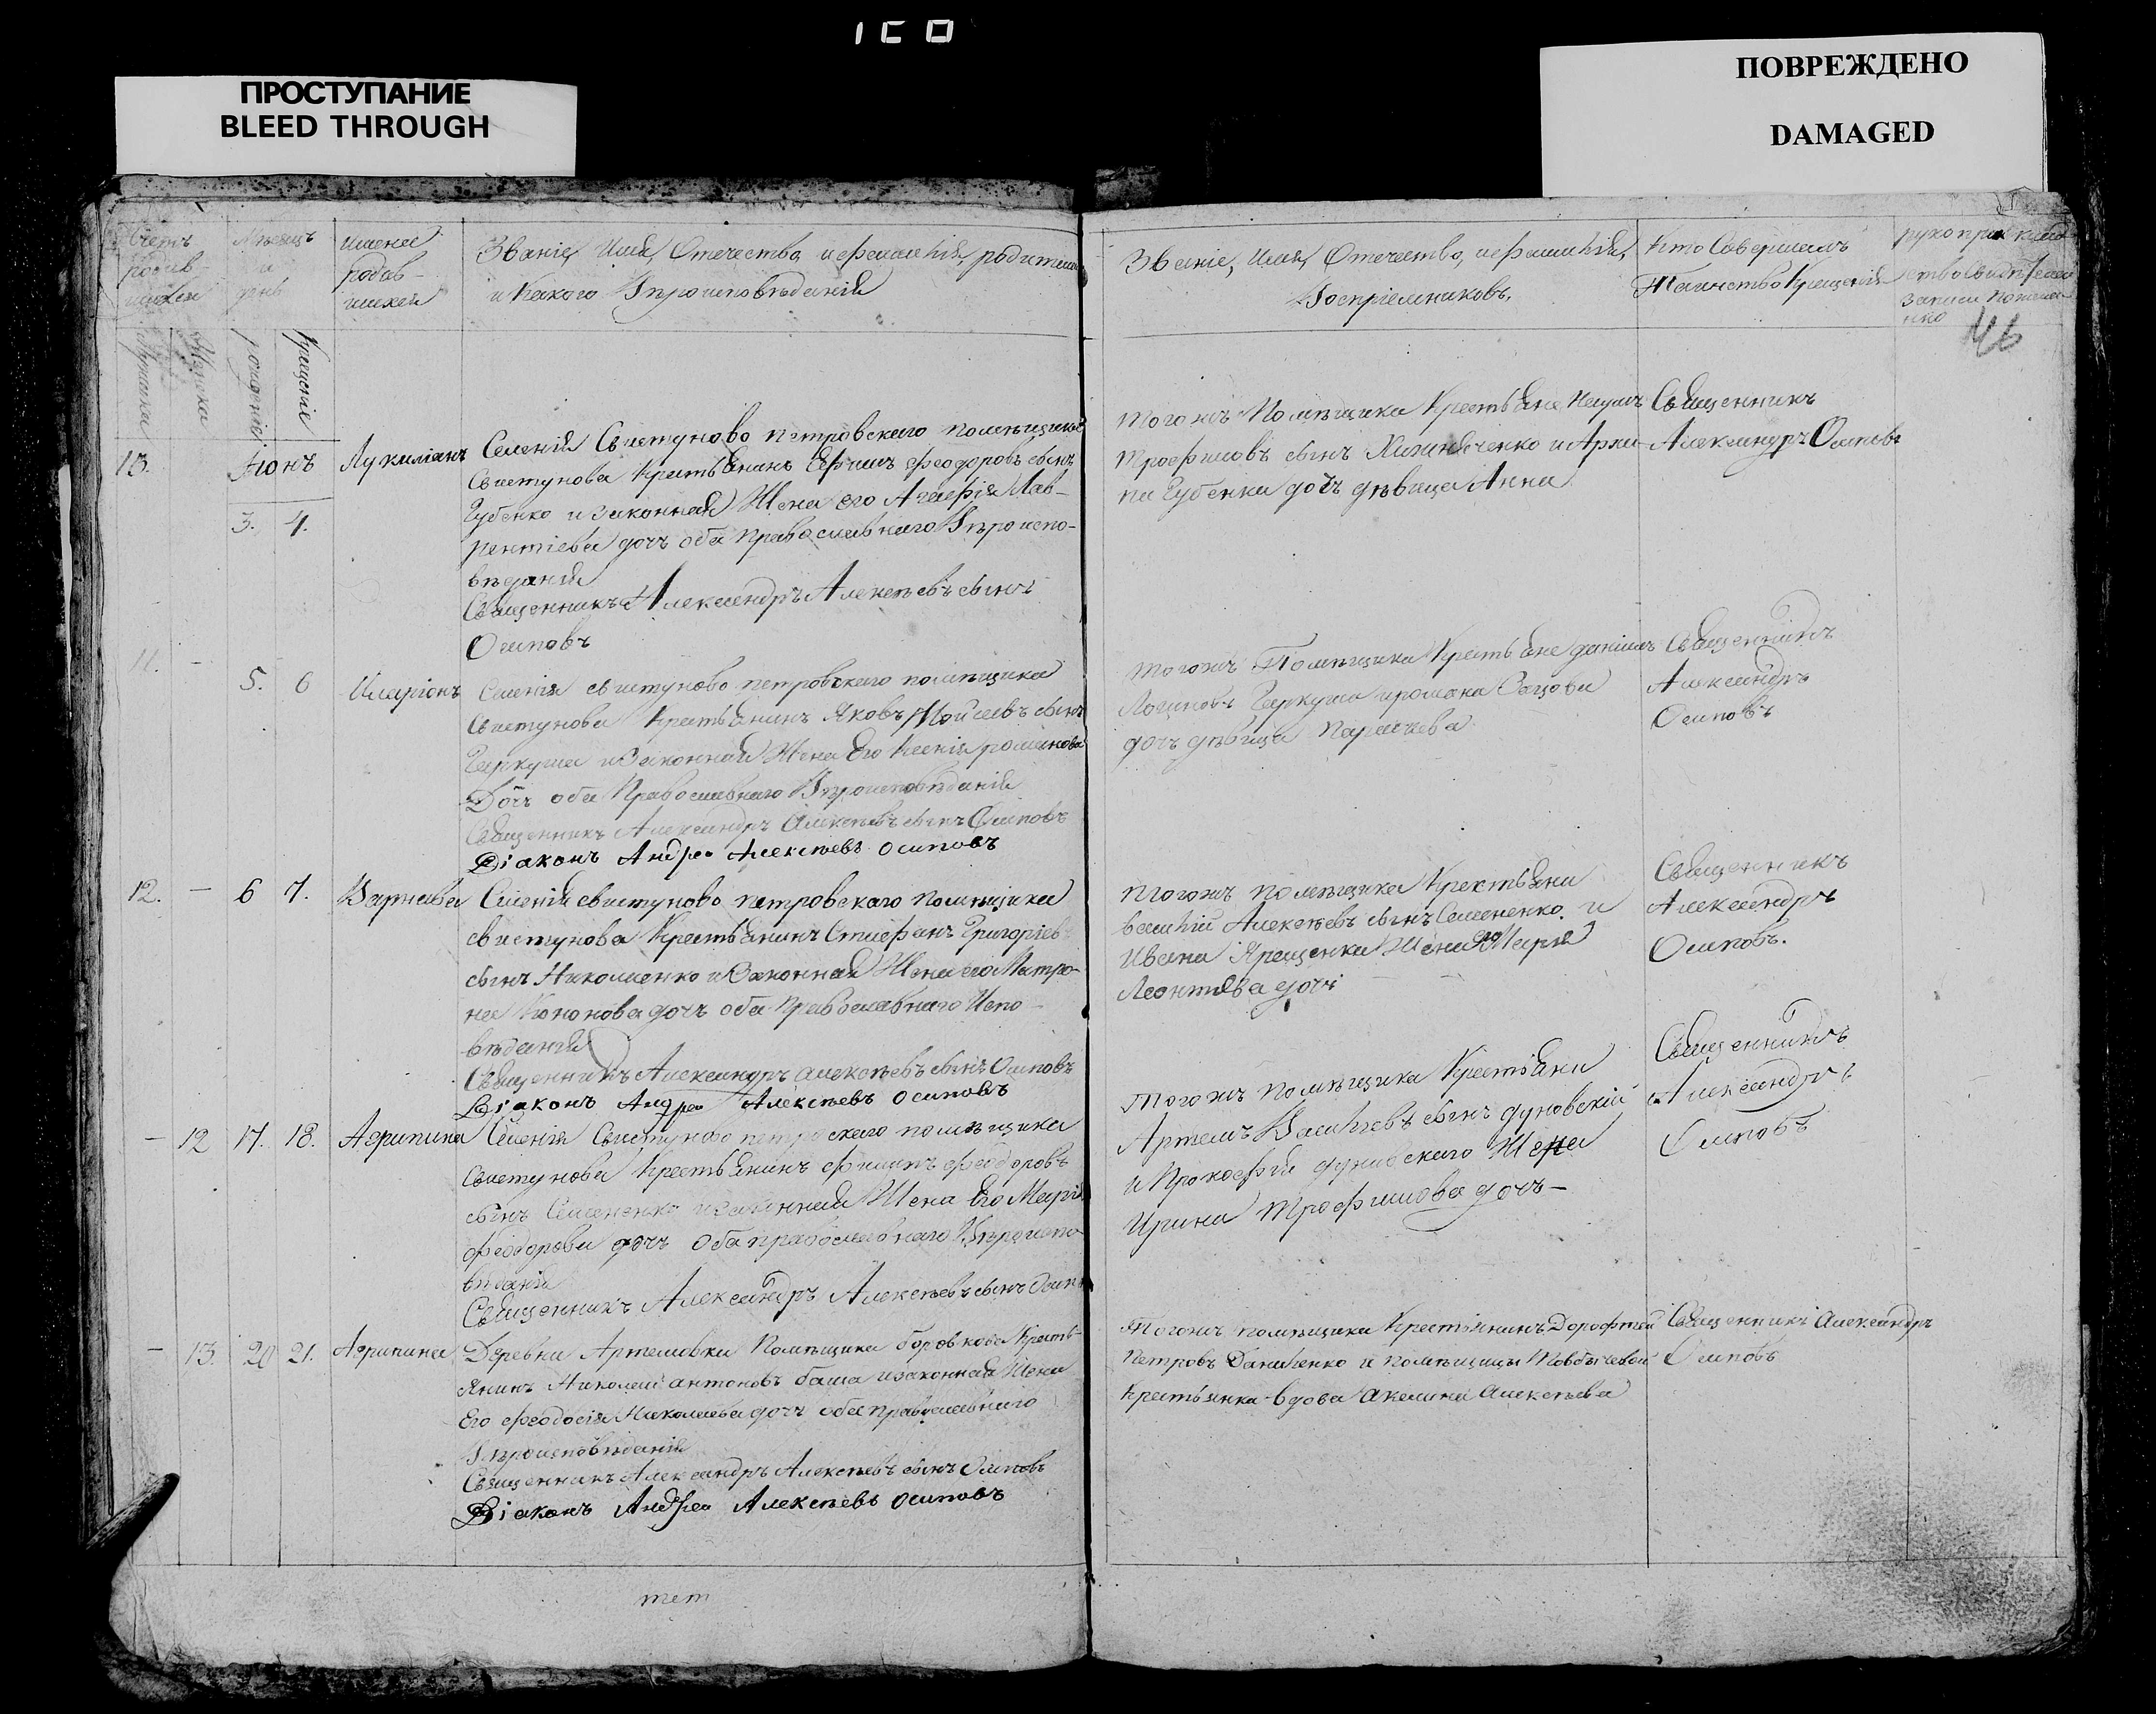 ПРОСТУПАНИЕ
BLEED THROUGH
ПОВРЕЖДЕНО
DAMAGED
Счетъ родив-шихся
Мѣсяцъ и день
Имена родив-шихся
Званіе, Имя, Отечество, и фамилія, родителей
и какого Вѣроисповѣданія
Званіе, Имя, Отечество, и фамилія,
Воспріемниковъ,
Кто Совершалъ
Таинство Крещенія
рукоприклад
ство свидѣтелей
записи по жела-
нію
46
Мужеска
Женска
рожденіе
Крещеніе
13.
Іюнь
3. 4.
Лукиліанъ
Селенія Свистуново петровскаго помѣщика
Свистунова Крестьянинъ Ефимъ Феодоровъ сынъ
Губенко и законная Жена его Агафія Лав-
рентіева дочъ оба православнаго Вѣроиспо-
вѣданія
Священникъ Александръ Алексѣевъ сынъ
Осиповъ
тогожъ Помѣщика Крестьяне Наумъ
Трофимовъ сынъ и Архи-
па Губенка дочъ дѣвица Анна
Священникъ
Александръ Осиповъ
11. - 5. 6
Иларіонъ
Селенія свистуново петровскаго помѣщика
Свистунова Крестьянинъ Яковъ Мойсеевъ сынъ
Гаркуша и Законная Жена Его Ксенія романова
Дочъ оба Православнаго Вѣроисповѣданія
Священникъ Александръ Алексѣевъ сынъ Осиповъ
Діаконъ Андрей Алексѣевъ Осиповъ
тогожъ Помѣщика Крестьяне даніилъ
Логиновъ Гаркуша и романа
дочъ дѣвица
Священникъ
Александръ
Осиповъ
12. - 6 7.
Варнава
Селенія свистуново петровскаго помѣщика
свистунова Крестьянинъ Стефанъ Григоріев
сынъ Николаенко и Законная Жена его Матро-
на Кононова дочъ оба Православнаго Испо-
вѣданія
Священникъ Александръ алексѣевъ сынъ Осиповъ
Діаконъ Андрей Алексѣевъ Осиповъ
тогожъ помѣщика Крестьяни
василій Алексѣевъ сынъ Семененко и
Ивана Ярещенка Жена Марія
Леонтьева дочь
Священникъ
Александръ
Осиповъ.
- 12 17. 18.
Агрипина
Селенія Свистуново петровскаго помѣщика
Свистунова Крестьянинъ Филипъ Феодоровъ
сынъ Семененко и законная Жена Его Марія
Феодорова дочъ оба православнаго Вѣроиспо
вѣданія
Священникъ Александръ Алексѣевъ сынъ Осип
тогожъ помѣщика Крестьяни
Артемъ Васильевъ сынъ дуновскій
и Прокофія дуновскаго Жена
Ирина Трофимова дочъ -
Священникъ
Александръ
Осиповъ
- 13. 20 21.
Агрипина
Деревни Артемовки Помѣщика боровкова Кресть-
янинъ Николай антоновъ баша и законная Жена
Его Феодосія Николаева дочъ оба православнаго
Вѣроисповѣданія
Священникъ Александръ Алексѣевъ сынъ Осиповъ
Діаконъ Андрей Алексѣевъ Осиповъ
Тогожъ помѣщика Крестьянинъ Дорофтей
Петровъ Даниленко и помѣщицы
Крестьянка вдова Акелина Алексѣева
Священникъ Александръ
Осиповъ